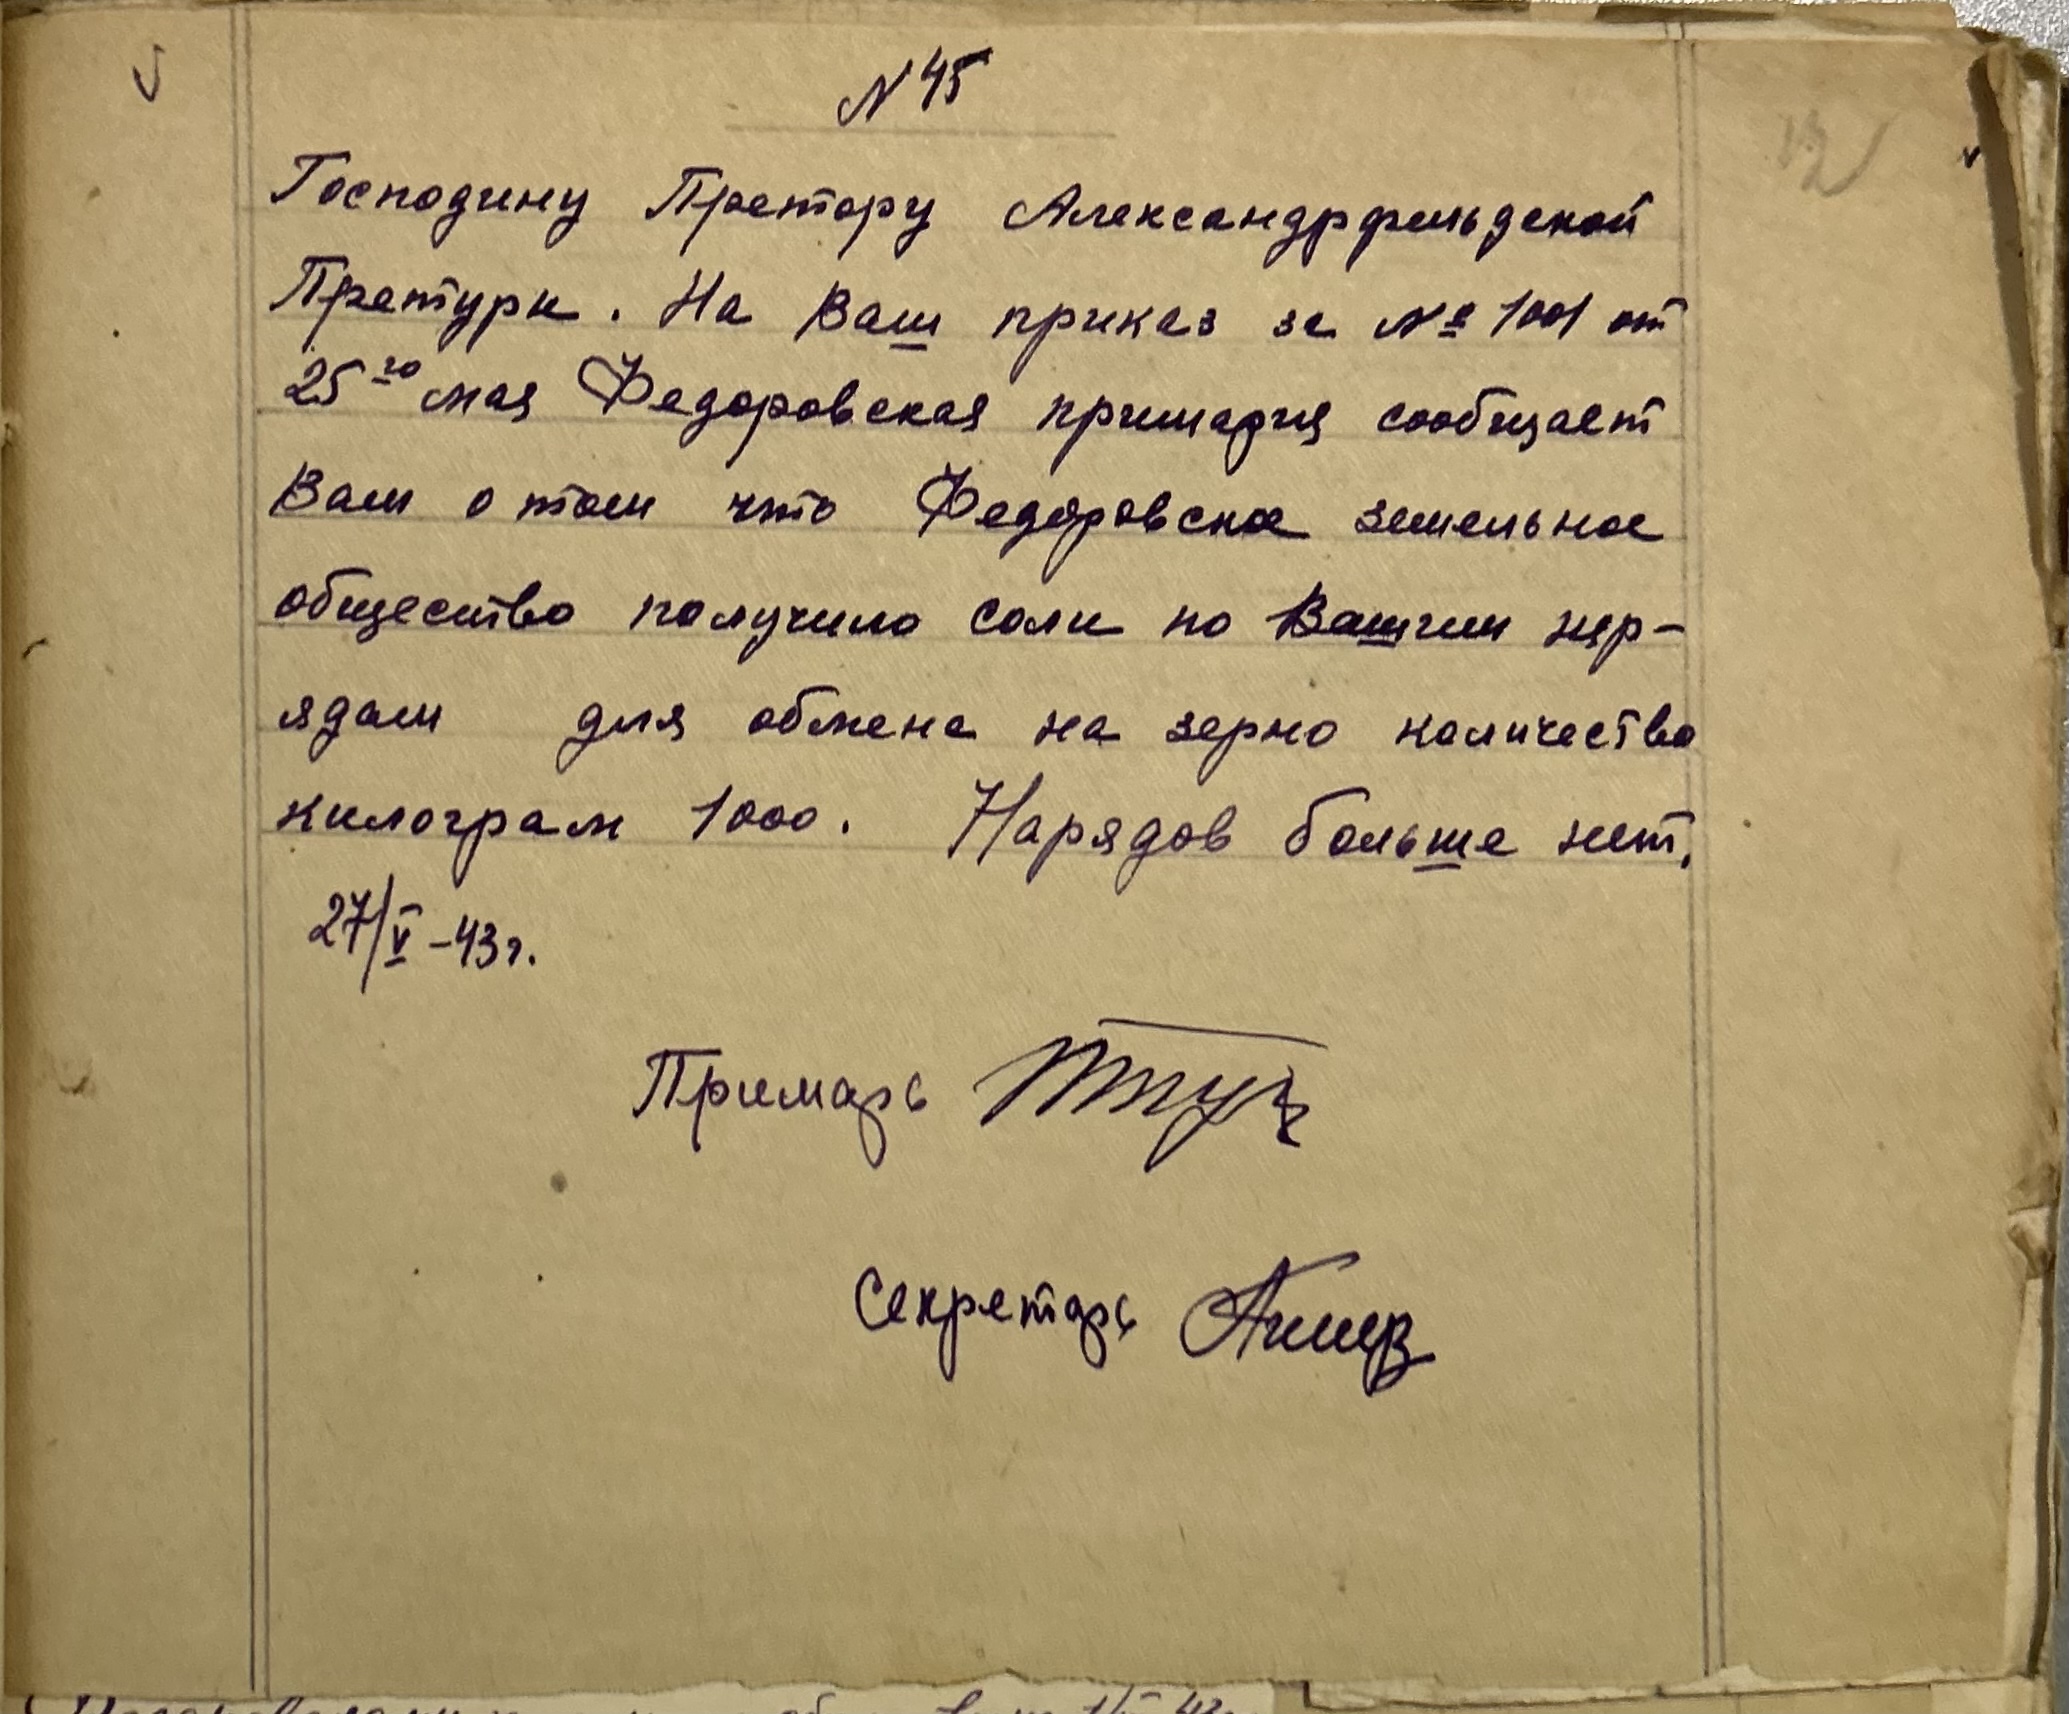 N 45
Господину Претору Александрфельдской
Претури. На Ваш приказ за № 1001 от
25го мая Федоровская примария сообщает
Вам о том что Федоровское земельное
общество получило соли по Вашим нар-
ядам для обмена на зерно количество
килограм 1000. Нарядов больше нет.
27/V -43г.
Примарь
Секретарь